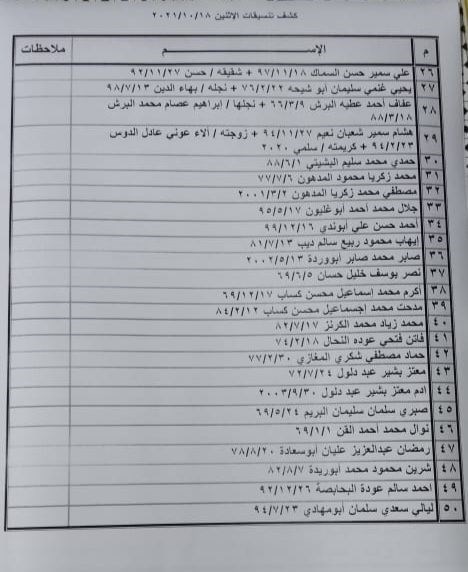 كشف تنسيقات الإثنين ٢٠٢١/١٠/١٨
م الإســـــم ملاحظات
٢٦ علي سمير حسن السماك ٩٧/١١/١٨ + شقيقه / حسن ٩٢/١١/٢٧
٢٧ يحيي غنمي سليمان أبو شيحه ٧٦/٢/٢٢ + نجله / بهاء الدين ٩٨/٧/١٣
٢٨ عفاف أحمد عطيه البرش ٦٦/٣/٩ + نجلها / إبراهيم عصام محمد البرش
٨٨/٣/١٨
٢٩ هشام سمير شعبان نعيم ٩٤/١١/٢٧ + زوجته / آلاء عوني عادل الدوس
٩٤/٢/٢٣ + كريمته / سلمي ٢٠٢٠
٣٠ حمدي محمد سليم البشيتي ٨٨/٦/١
٣١ محمد زكريا محمود المدهون ٧٧/٧/٦
٣٢ مصطفي محمد زكريا المدهون ٢٠٠١/٣/٢
٣٣ جلال محمد أحمد أبوغليون ٩٥/٥/١٧
٣٤ أحمد حسن علي أبوندي ٩٩/١٢/١٦
٣٥ إيهاب محمود ربيع سالم ديب ٨١/٧/١٣
٣٦ صابر محمد صابر أبووردة ٢٠٠٢/٥/١٣
٣٧ نصر يوسف خليل حسان ٦٩/٦/٥
٣٨ أكرم محمد إسماعيل محسن كساب ٦٩/١٢/١٧
٣٩ مدحت محمد إجسماعيل محسن كساب ٨٤/٢/١٢
٤٠ محمد زياد محمد الكرنز ٨٢/٧/١٧
٤١ فاتن فتحي عوده النحال ٧٤/٢/١٨
٤٢ حماد مصطفي شكري المغازي ٧٧/٢/٣٠
٤٣ معتز بشير عبد دلول ٧٢/٧/٢٤
٤٤ ادم معتز بشير عبد دلول ٢٠٠٣/٩/٣٠
٤٥ صبري سلمان سليمان البريم ٦٩/٥/٢٤
٤٦ نوال محمد احمد القن ٦٩/١/١
٤٧ رمضان عبدالعزيز عليان أبوسعادة ٧٨/٨/٢٠
٤٨ شرين محمود محمد أبوريدة ٨٢/٨/٧
٤٩ احمد سالم عودة البحابصة ٩٢/١٢/٢٦
٥٠ ليالي سعدي سلمان أبومهادي ٩٤/٧/٢٣